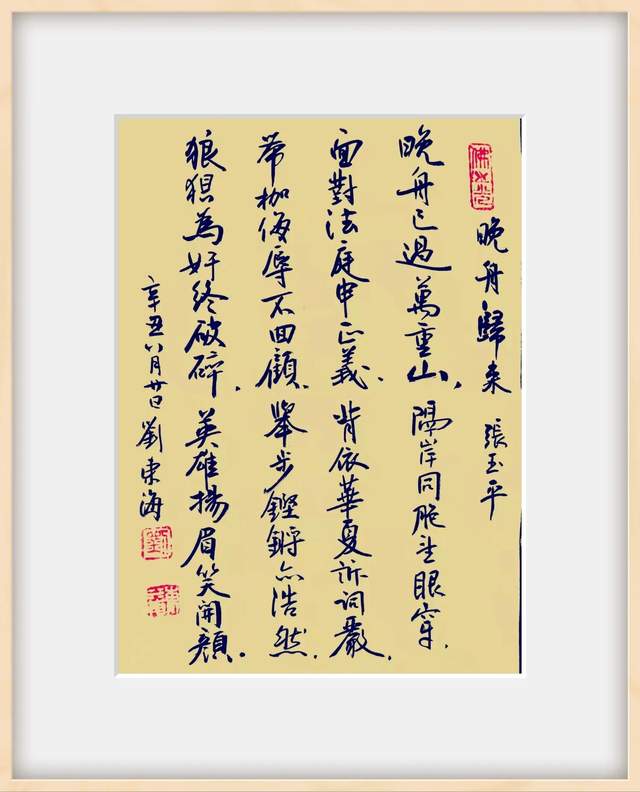 晚舟歸來 張玉平
晚舟已過萬重山，隔岸同胞望眼穿，
面對法庭申正義，背依華夏訴詞嚴，
帶枷侮辱不回顧，舉步鏗鏘亦浩然，
狼狽為奸終破碎，英雄揚眉笑開顏。
辛丑八月廿四 劉東海